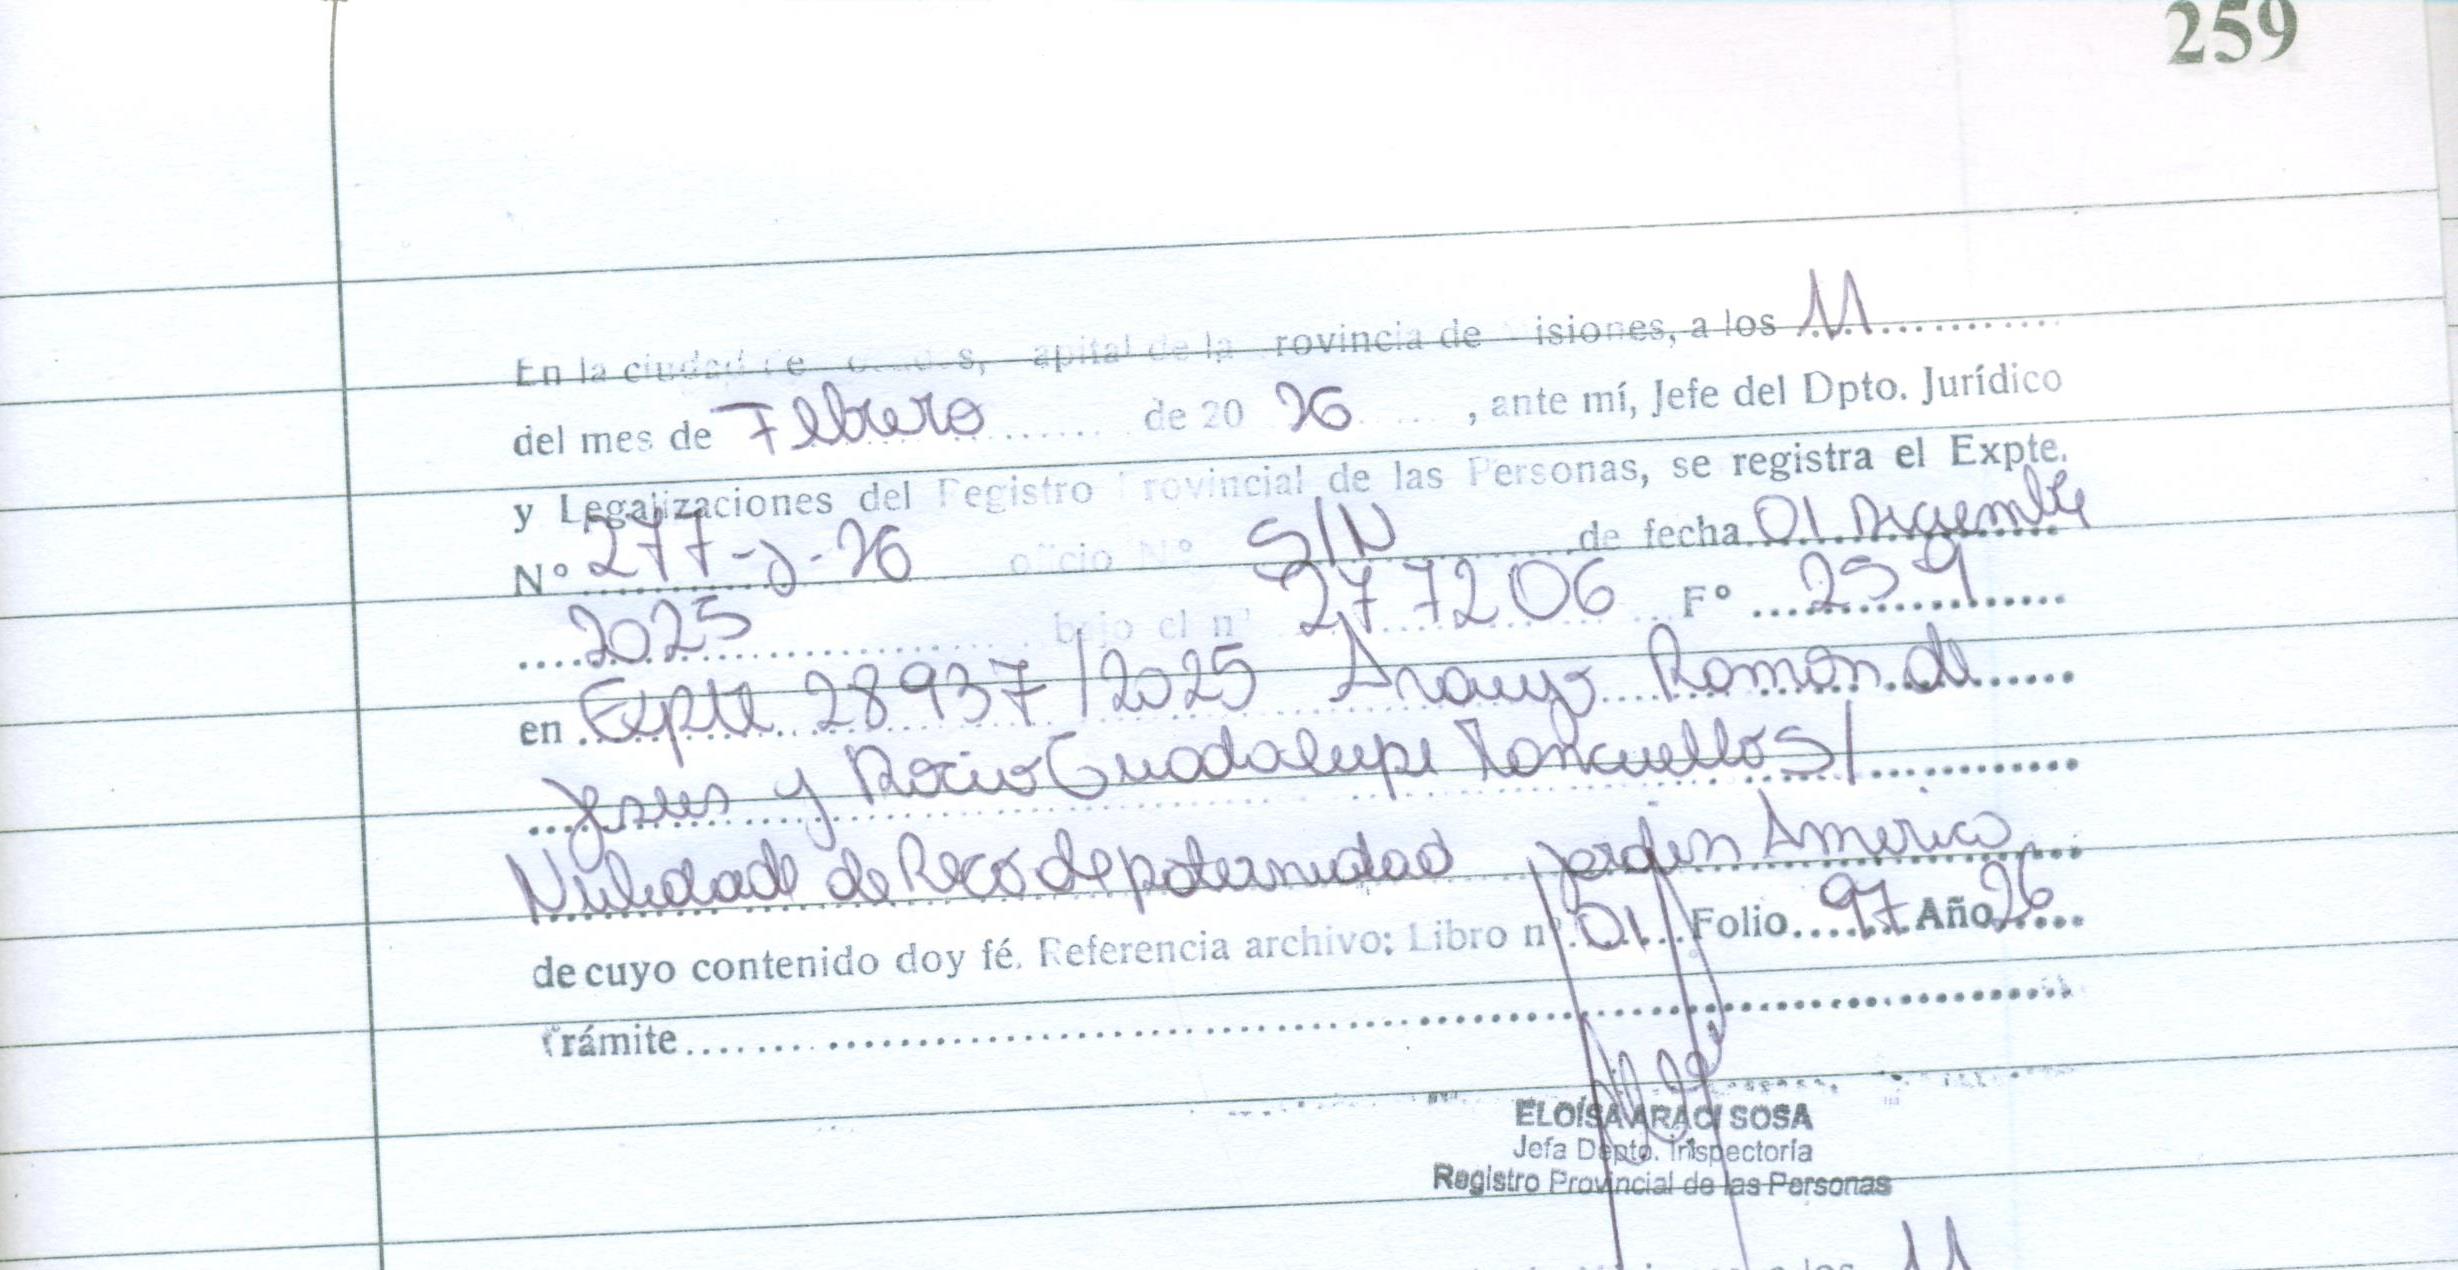 259
En la ciudad de Posadas, Capital de la Provincia de Misiones, a los 11
del mes de Febrero de 20 26, ante mí, Jefe del Dpto. Jurídico
y Legalizaciones del Registro Provincial de las Personas, se registra el Expte.
N° 277-J-26 oficio N° S/N de fecha 01 Diciembre
2025 bajo el n° 277206 F° 259
en Expte 28937/2025 Araujo Ramon de
Jesus y Rocio Guadalupe S/
Nulidade de Reco de paternidad Jardin America
de cuyo contenido doy fé. Referencia archivo: Libro n° 01 Folio 97 Año 26
Trámite
ELOÍSA ARACI SOSA
Jefa Depto. Inspectoría
Registro Provincial de las Personas
a los 11